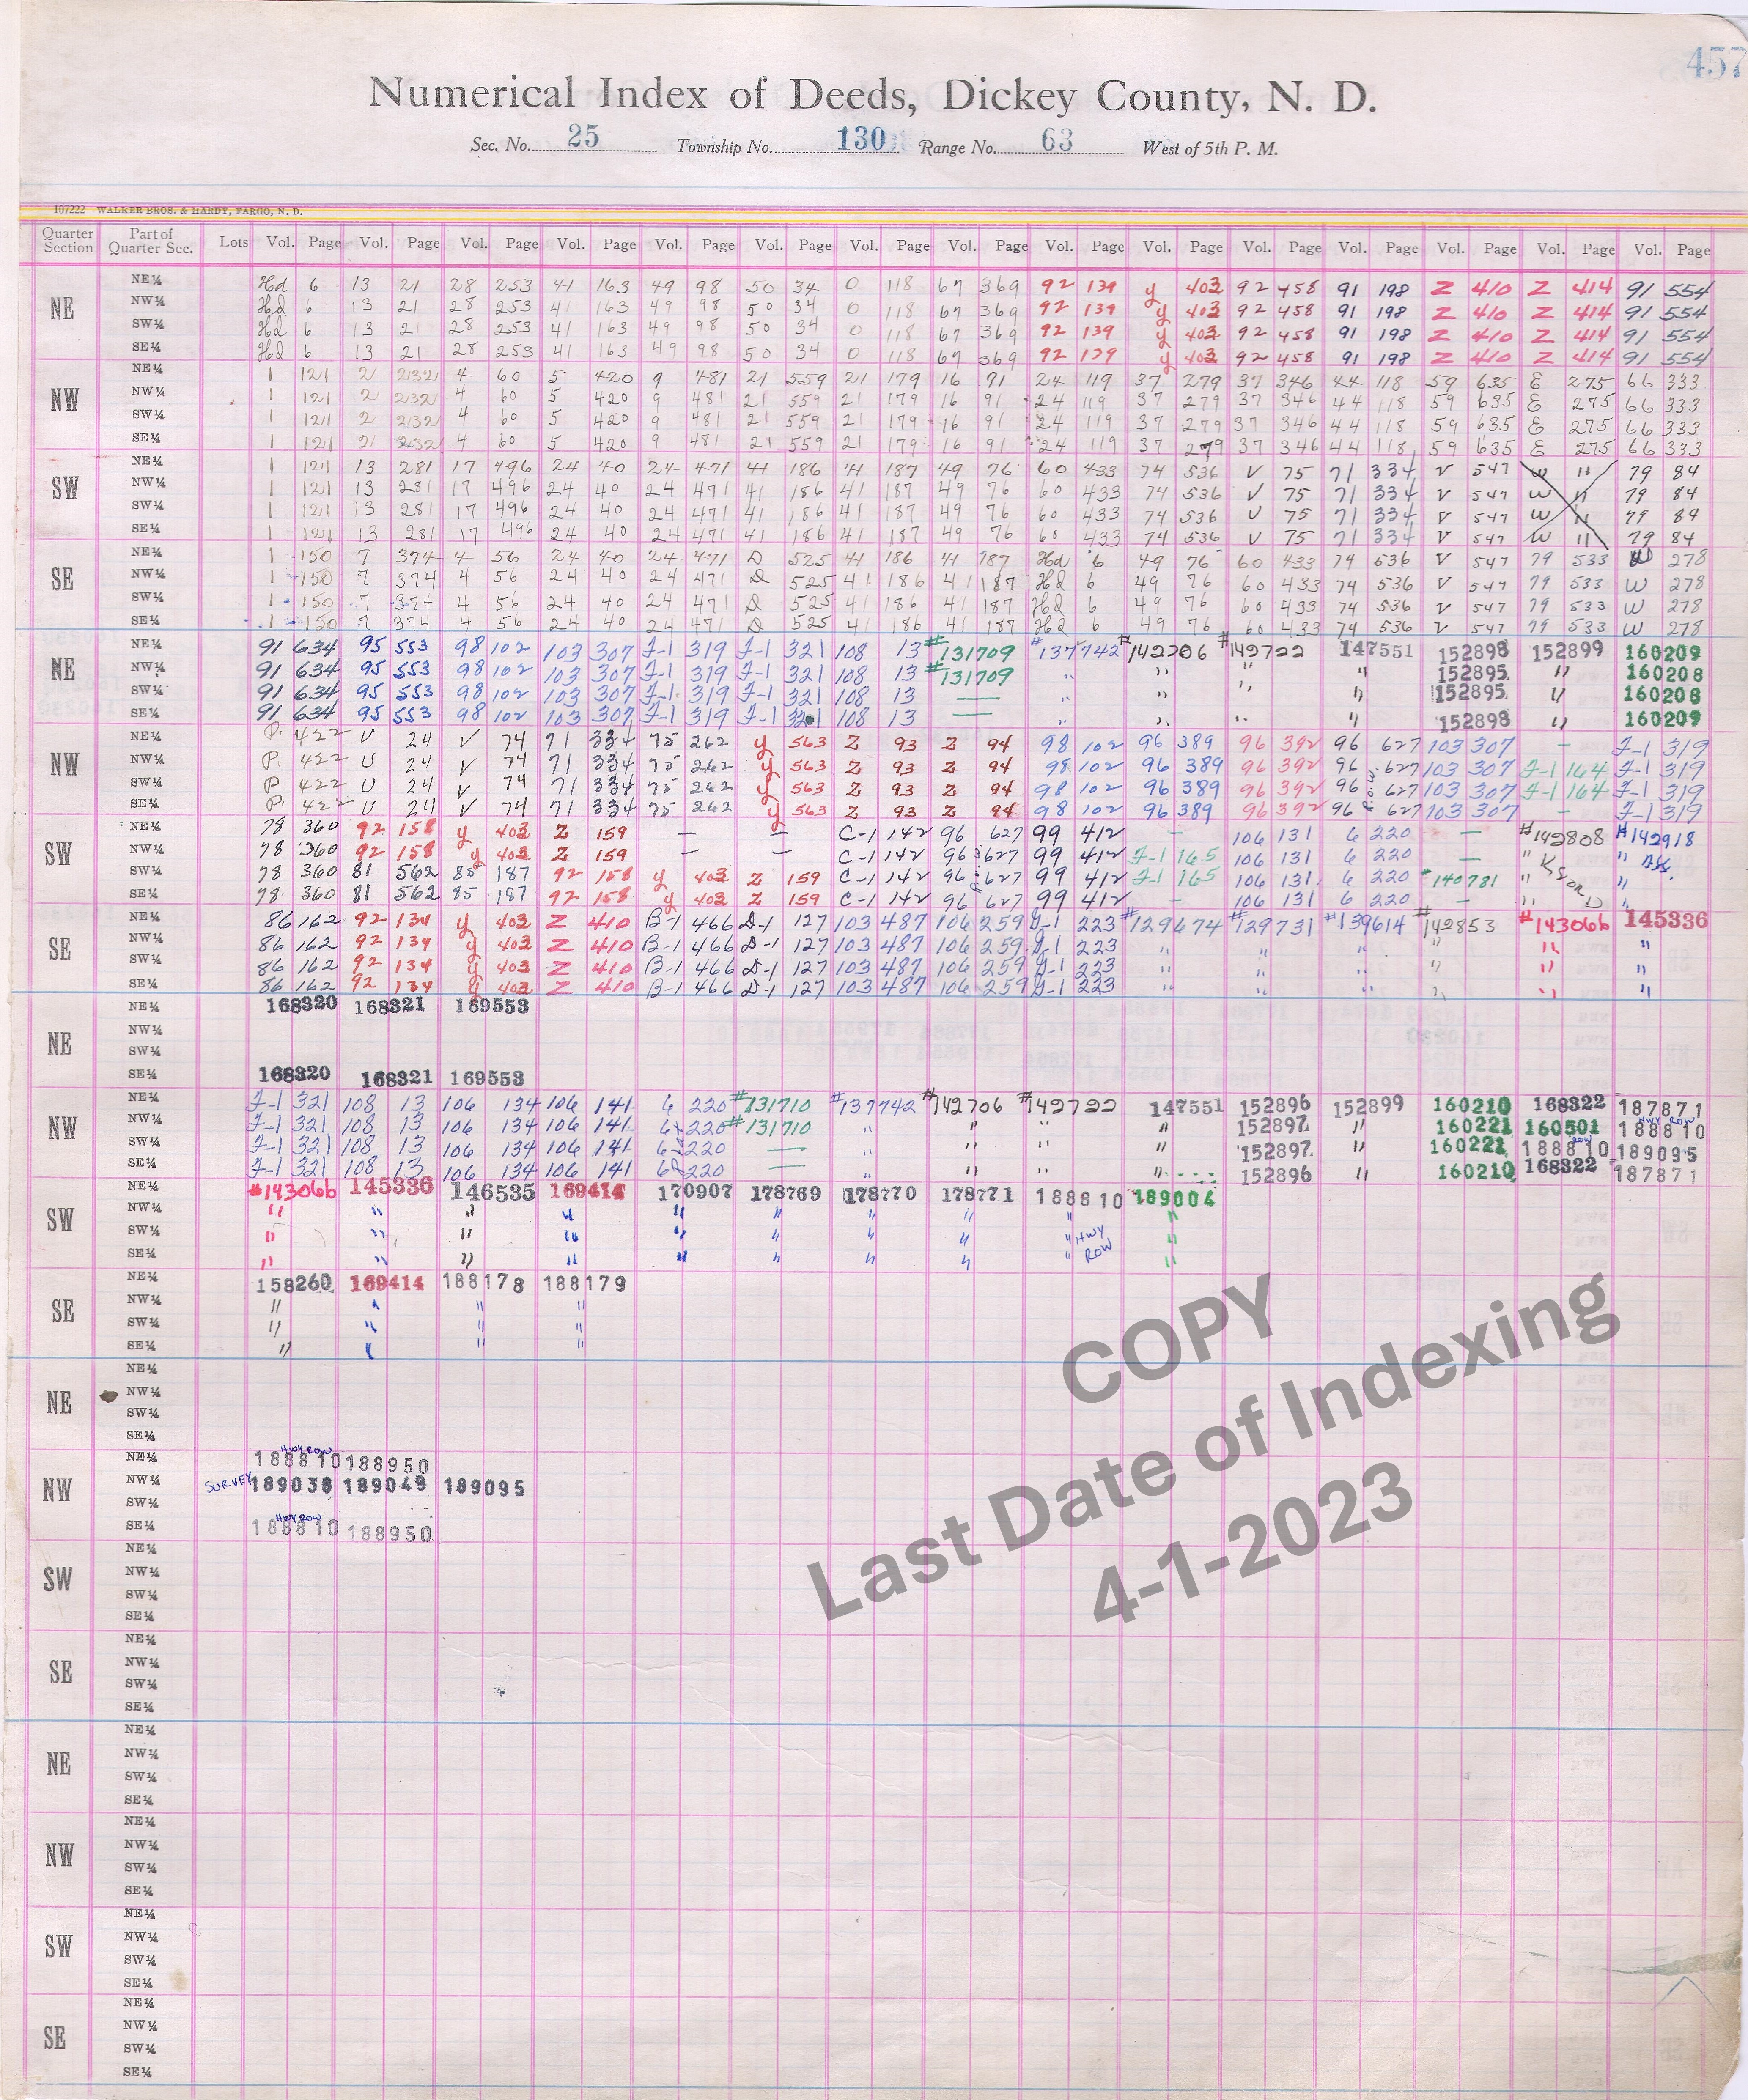 457
Numerical Index of Deeds, Dickey County, N. D.
Sec. No. 25 Township No. 130 Range No. 63 West of 5th P. M.
107222 WALKER BROS. & HARDY, FARGO, N. D.
Quarter Section Part of Quarter Sec. Lots Vol. Page Vol. Page Vol. Page Vol. Page Vol. Page Vol. Page Vol. Page Vol. Page Vol. Page Vol. Page Vol. Page Vol. Page Vol. Page Vol. Page Vol. Page
NE NE¼ Hd 6 13 21 28 253 41 163 49 98 50 34 O 118 67 369 92 139 y 403 92 458 91 198 Z 410 Z 414 91 554
NW¼ Hd 6 13 21 28 253 41 163 49 98 50 34 O 118 67 369 92 139 y 403 92 458 91 198 Z 410 Z 414 91 554
SW¼ Hd 6 13 21 28 253 41 163 49 98 50 34 O 118 67 369 92 139 y 403 92 458 91 198 Z 410 Z 414 91 554
SE¼ Hd 6 13 21 28 253 41 163 49 98 50 34 O 118 67 369 92 139 y 403 92 458 91 198 Z 410 Z 414 91 554
NW NE¼ 1 121 2 232 4 60 5 420 9 481 21 559 21 179 16 91 24 119 37 279 37 346 44 118 59 635 E 275 66 333
NW¼ 1 121 2 232 4 60 5 420 9 481 21 559 21 179 16 91 24 119 37 279 37 346 44 118 59 635 E 275 66 333
SW¼ 1 121 2 232 4 60 5 420 9 481 21 559 21 179 16 91 24 119 37 279 37 346 44 118 59 635 E 275 66 333
SE¼ 1 121 2 232 4 60 5 420 9 481 21 559 21 179 16 91 24 119 37 279 37 346 44 118 59 635 E 275 66 333
SW NE¼ 1 121 13 281 17 496 24 40 24 471 41 186 41 187 49 76 60 433 74 536 V 75 71 334 V 547 W 11 79 84
NW¼ 1 121 13 281 17 496 24 40 24 471 41 186 41 187 49 76 60 433 74 536 V 75 71 334 V 547 W 11 79 84
SW¼ 1 121 13 281 17 496 24 40 24 471 41 186 41 187 49 76 60 433 74 536 V 75 71 334 V 547 W 11 79 84
SE¼ 1 121 13 281 17 496 24 40 24 471 41 186 41 187 49 76 60 433 74 536 V 75 71 334 V 547 W 11 79 84
SE NE¼ 1 150 7 374 4 56 24 40 24 471 D 525 41 186 41 187 Hd 6 49 76 60 433 74 536 V 547 79 533 W 278
NW¼ 1 150 7 374 4 56 24 40 24 471 D 525 41 186 41 187 Hd 6 49 76 60 433 74 536 V 547 79 533 W 278
SW¼ 1 150 7 374 4 56 24 40 24 471 D 525 41 186 41 187 Hd 6 49 76 60 433 74 536 V 547 79 533 W 278
SE¼ 1 150 7 374 4 56 24 40 24 471 D 525 41 186 41 187 Hd 6 49 76 60 433 74 536 V 547 79 533 W 278
NE NE¼ 91 634 95 553 98 102 103 307 F-1 319 F-1 321 108 13 #131709 #137742 #142706 #142722 147551 152898 152899 160209
NW¼ 91 634 95 553 98 102 103 307 F-1 319 F-1 321 108 13 #131709 " " " " 152895 " 160208
SW¼ 91 634 95 553 98 102 103 307 F-1 319 F-1 321 108 13 — " " " " 152895 " 160208
SE¼ 91 634 95 553 98 102 103 307 F-1 319 F-1 321 108 13 — " " " " 152898 " 160209
NW NE¼ P. 422 U 24 V 74 71 334 75 262 y 563 Z 93 Z 94 98 102 96 389 96 392 96 627 103 307 — F-1 319
NW¼ P. 422 U 24 V 74 71 334 75 262 y 563 Z 93 Z 94 98 102 96 389 96 392 96 627 103 307 F-1 164 F-1 319
SW¼ P 422 U 24 V 74 71 334 75 262 y 563 Z 93 Z 94 98 102 96 389 96 392 96 627 103 307 F-1 164 F-1 319
SE¼ P. 422 U 24 V 74 71 334 75 262 y 563 Z 93 Z 94 98 102 96 389 96 392 96 627 103 307 — F-1 319
SW NE¼ 78 360 92 158 y 403 Z 159 — — C-1 142 96 627 99 412 — 106 131 6 220 — #142808 #142918
NW¼ 78 360 92 158 y 403 Z 159 — — C-1 142 96 627 99 412 F-1 165 106 131 6 220 — " "
SW¼ 78 360 81 562 85 187 92 158 y 403 Z 159 C-1 142 96 627 99 412 F-1 165 106 131 6 220 #140781 " "
SE¼ 78 360 81 562 85 187 92 158 y 403 Z 159 C-1 142 96 627 99 412 — 106 131 6 220 — " "
SE NE¼ 86 162 92 134 y 403 Z 410 B-1 466 D-1 127 103 487 106 259 G-1 223 #129674 #129731 #139614 #142853 #143066 145336
NW¼ 86 162 92 134 y 403 Z 410 B-1 466 D-1 127 103 487 106 259 G-1 223 " " " " " "
SW¼ 86 162 92 134 y 403 Z 410 B-1 466 D-1 127 103 487 106 259 G-1 223 " " " " " "
SE¼ 86 162 92 134 y 403 Z 410 B-1 466 D-1 127 103 487 106 259 G-1 223 " " " " " "
NE NE¼ 168320 168321 169553
NW¼
SW¼
SE¼ 168320 168321 169553
NW NE¼ F-1 321 108 13 106 134 106 141 6 220 #131710 #137742 #142706 #142722 147551 152896 152899 160210 168322 187871
NW¼ F-1 321 108 13 106 134 106 141 6 220 #131710 " " " " 152897 " 160221 160501 188810 HWY ROW
SW¼ F-1 321 108 13 106 134 106 141 6 220 — " " " " 152897 " 160221 188810 ROW 189095
SE¼ F-1 321 108 13 106 134 106 141 6 220 — " " " " 152896 " 160210 168322 187871
SW NE¼ #143066 145336 146535 169414 170907 178769 178770 178771 188810 189004
NW¼ " " " " " " " " " "
SW¼ " " " " " " " " " HWY "
SE¼ " " " " " " " " " ROW "
SE NE¼ 158260 169414 188178 188179
NW¼ " " " "
SW¼ " " " "
SE¼ " " " "
COPY
Last Date of Indexing
4-1-2023
NE NE¼
NW¼
SW¼
SE¼
NW NE¼ HWY ROW 188810 188950
NW¼ SURVEY 189038 189049 189095
SW¼
SE¼ HWY ROW 188810 188950
SW NE¼
NW¼
SW¼
SE¼
SE NE¼
NW¼
SW¼
SE¼
NE NE¼
NW¼
SW¼
SE¼
NW NE¼
NW¼
SW¼
SE¼
SW NE¼
NW¼
SW¼
SE¼
SE NE¼
NW¼
SW¼
SE¼